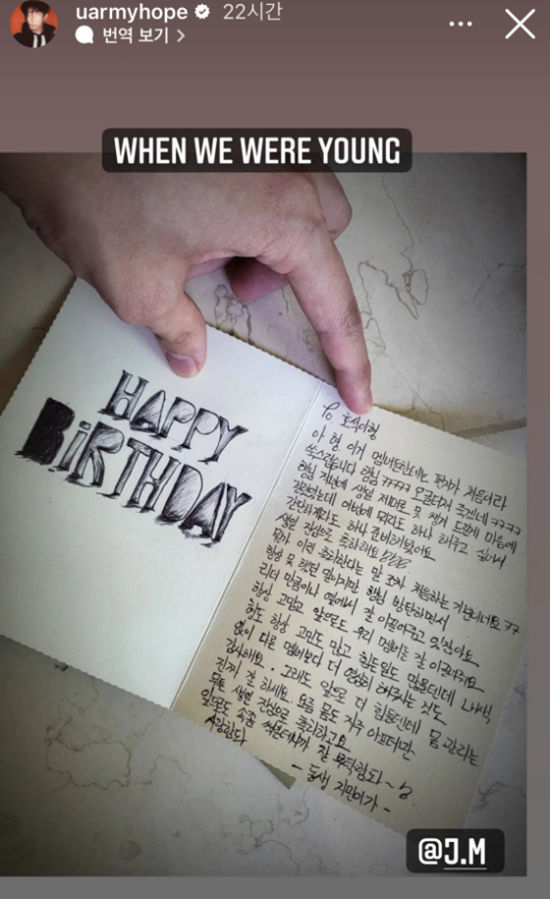 uarmyhope 22시간
번역 보기
WHEN WE WERE YOUNG
HAPPY
BiRTHDAY
To 호석이형
아 형 이거 멤버들한테는 편지가 처음이라
쑥스럽습니다 형님 ㅋㅋㅋㅋㅋ 오글거려 죽겠네 ㅋㅋㅋㅋ
형님 저번에 생일 제대로 못 챙겨 드린게 마음에
걸렸었는데 이번에 뭐라도 하나 해주고 싶어서
간단하게라도 하나 준비해봤어요
생일 진심으로 축하해요
뭔가 이런 축하한다는 말 조차 처음하는 거 같네요 ㅋㅋ
항상 못 했던 말이지만 형님 방탄하면서
리더 만큼이나 옆에서 잘 이끌어주고 있잖아요
항상 고맙고 앞으로도 우리 멤버들 잘 이끌어줘요
형도 항상 고민도 많고 힘든일도 많을텐데 내색
없이 다른 멤버보다 더 열심히 해주시는 것도
감사해요. 그리고 앞으로 더 힘들텐데 몸 관리는
진짜 잘 하세요. 요즘 몸도 자주 아프더만
무튼 생일 진심으로 축하하고요
앞으로도 속좀 썩일테니까 잘 부탁함돠~
사랑함다
- 동생 지민이가 -
@J.M